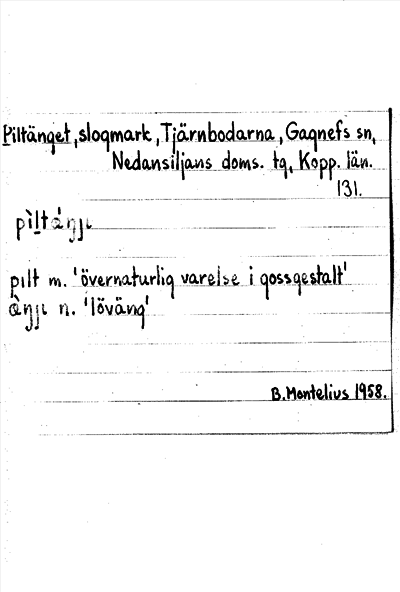 Piltänget, slogmark, Tjärnbodarna, Gagnefs sn,
Nedansiljans doms. tg, Kopp. län.
131.
pìltáŋjɩ
pɩlt m. 'övernaturlig varelse i gossgestalt'
àŋjɩ n. 'löväng'
B. Montelius 1958.